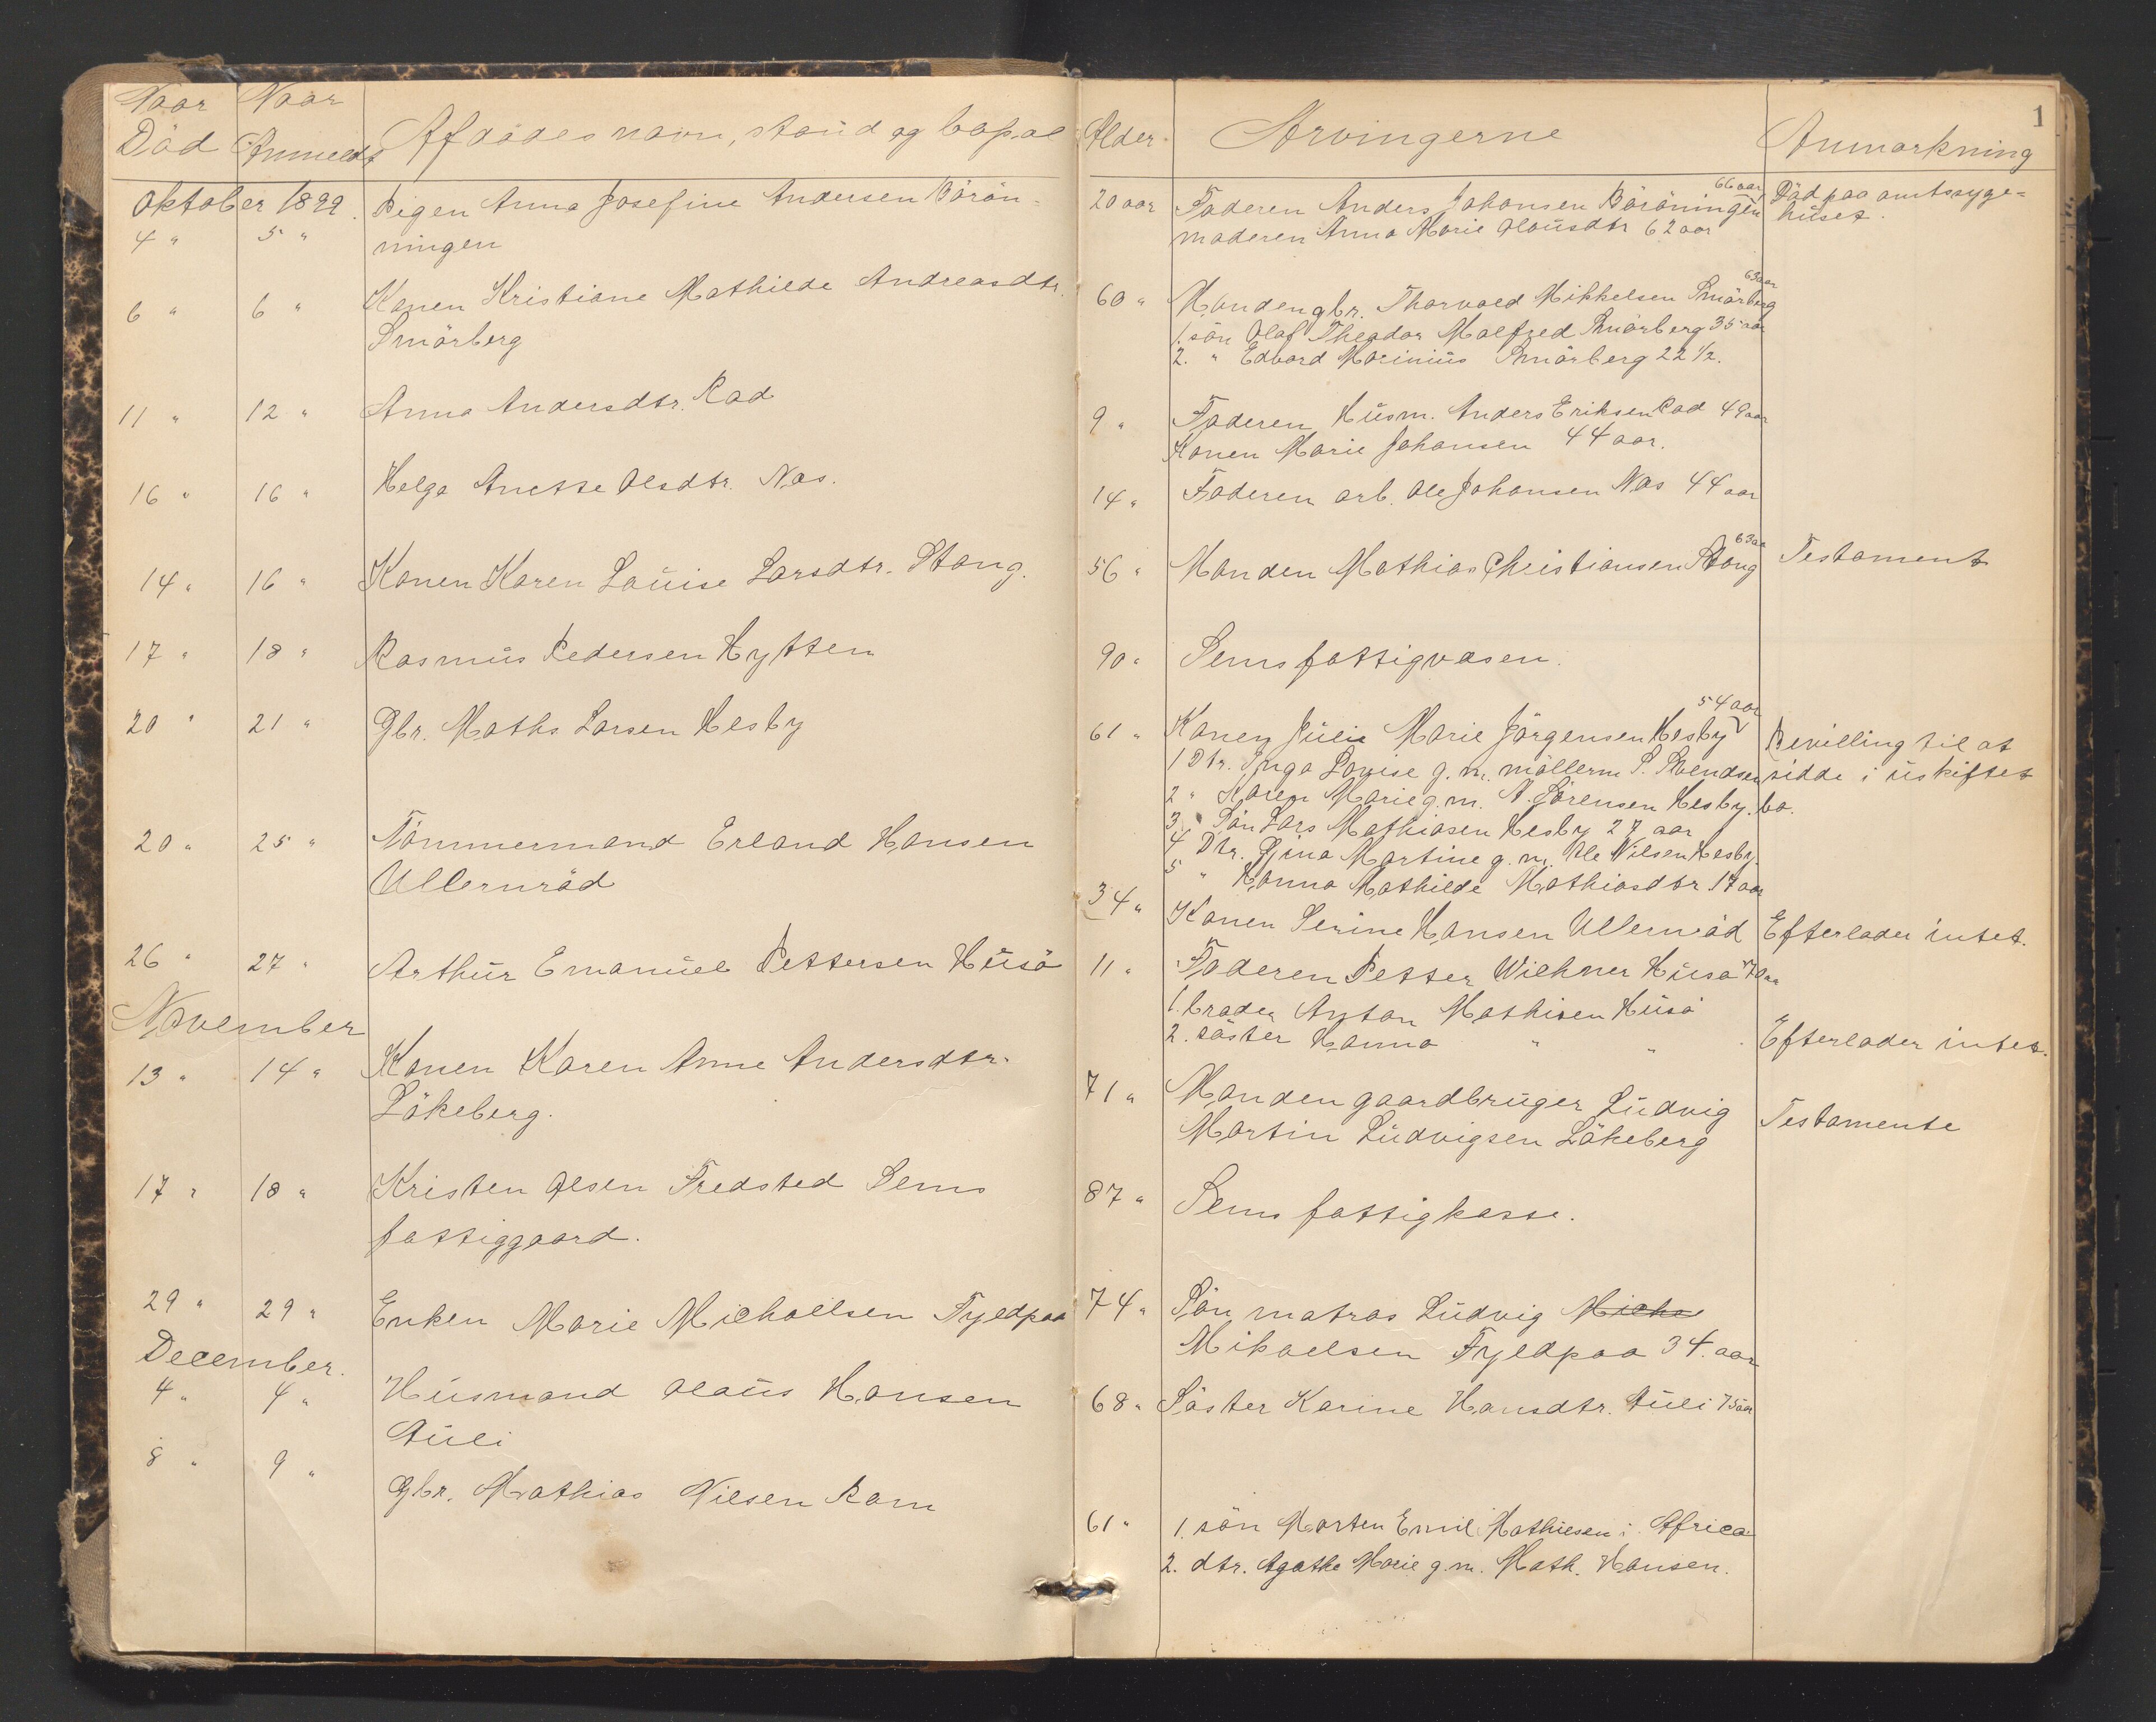 Naar Naar
Död Anmeldt Afdödes navn, stand og bopæl
Oktober 1899.
4 " 5 " Pigen Anna Josefine Andersen Börön-
ningen
6 " 6 " Konen Kristiane Mathilde Andreasdtr.
Smörberg
11 " 12 " Anna Andersdtr. Rad
16 " 16 " Helga Anette Olsdtr. Næs.
14 " 16 " Konen Karen Louise Larsdtr. Stang.
17 " 18 " Rasmus Pedersen Hytten
20 " 21 " Gbr. Maths Larsen Hesby
20 " 25 " Tömmermand Erland Hansen
Ullernröd
26 " 27 " Arthur Emanuel Pettersen Husö
November
13 " 14 " Konen Karen Anne Andersdtr.
Lökeberg.
17 " 18 " Kristen Olsen Fredsted Sems
fattiggaard.
29 " 29 " Enken Marie Michaelsen Fyldpaa
December.
4 " 4 " Husmand Olaus Hansen
Auli
8 " 9 " Gbr. Mathias Nilsen Ram
1
Alder. Arvingerne Anmærkning
20 aar Faderen Anders Johansen Böröningen 66 aar Död paa amtssyge-
moderen Anna Marie Olausdtr 62 aar huset.
60 " Manden gbr. Thorvald Mikkelsen Smörberg 63 aar
1. sön Olaf Theodor Malfred Smörberg 35 aar
2. " Edvard Marinius Smörberg 22 1/2.
9 " Faderen Husm. Anders Eriksen Rad 49 aar
Konen Marie Johansen 44 aar.
14 " Faderen arb. Ole Johansen Næs 44 aar
56 " Manden Mathias Christiansen Stang 63 aar Testament
90 " Sems fattigvæsen.
61 " Konen Julie Marie Jörgensen Hesby 54 aar Bevilling til at
1 Dtr. Inga Lovise g. m. möllerm S. Svendsen sidde i uskiftet
2 " Karen Marie g. m. A. Sörensen Hesby. bo.
3 " Sön Lars Mathiasen Hesby 27 aar
4 Dtr. Gina Martine g. m. Ole Nilsen Hesby.
5 " Hanna Mathilde Mathiasdtr 17 aar
34 " Konen Serine Hansen Ullernröd Efterlader intet.
11 " Faderen Petter Wickner Husö 70 aar
1. broder Anton Mathisen Husö
2. söster Hanna " " Efterlader intet.
71 " Manden gaardbruger Ludvig
Martin Ludvigsen Lökeberg Testamente
87 " Sems fattigkasse.
74 " Sön matros Ludvig Micha
Mikaelsen Fyldpaa 34. aar
68 " Söster Karine Hansdtr. Auli 75 aar
61 " 1. sön Marten Emil Mathiesen i Africa
2. dtr. Agathe Marie g. m. Math. Hansen.